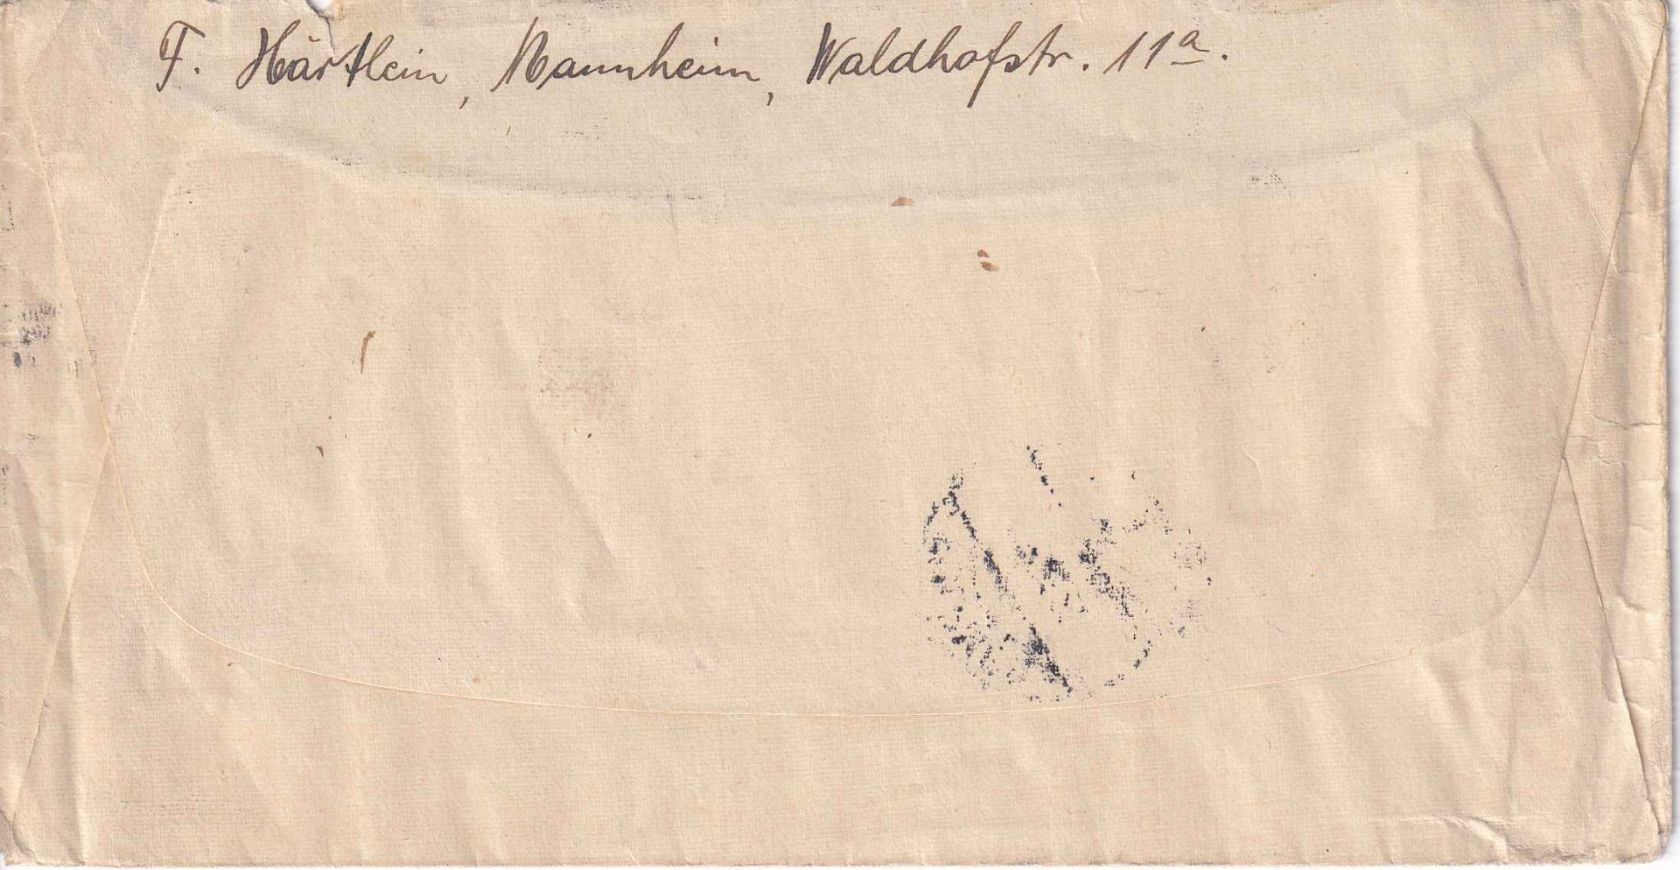 F. Härtlein, Mannheim, Waldhofstr. 11a.